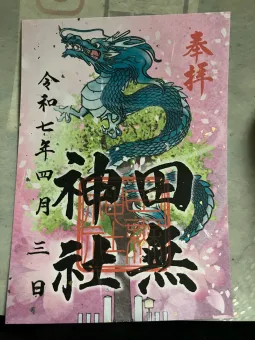 奉拝
田無
神社
令和七年四月三日